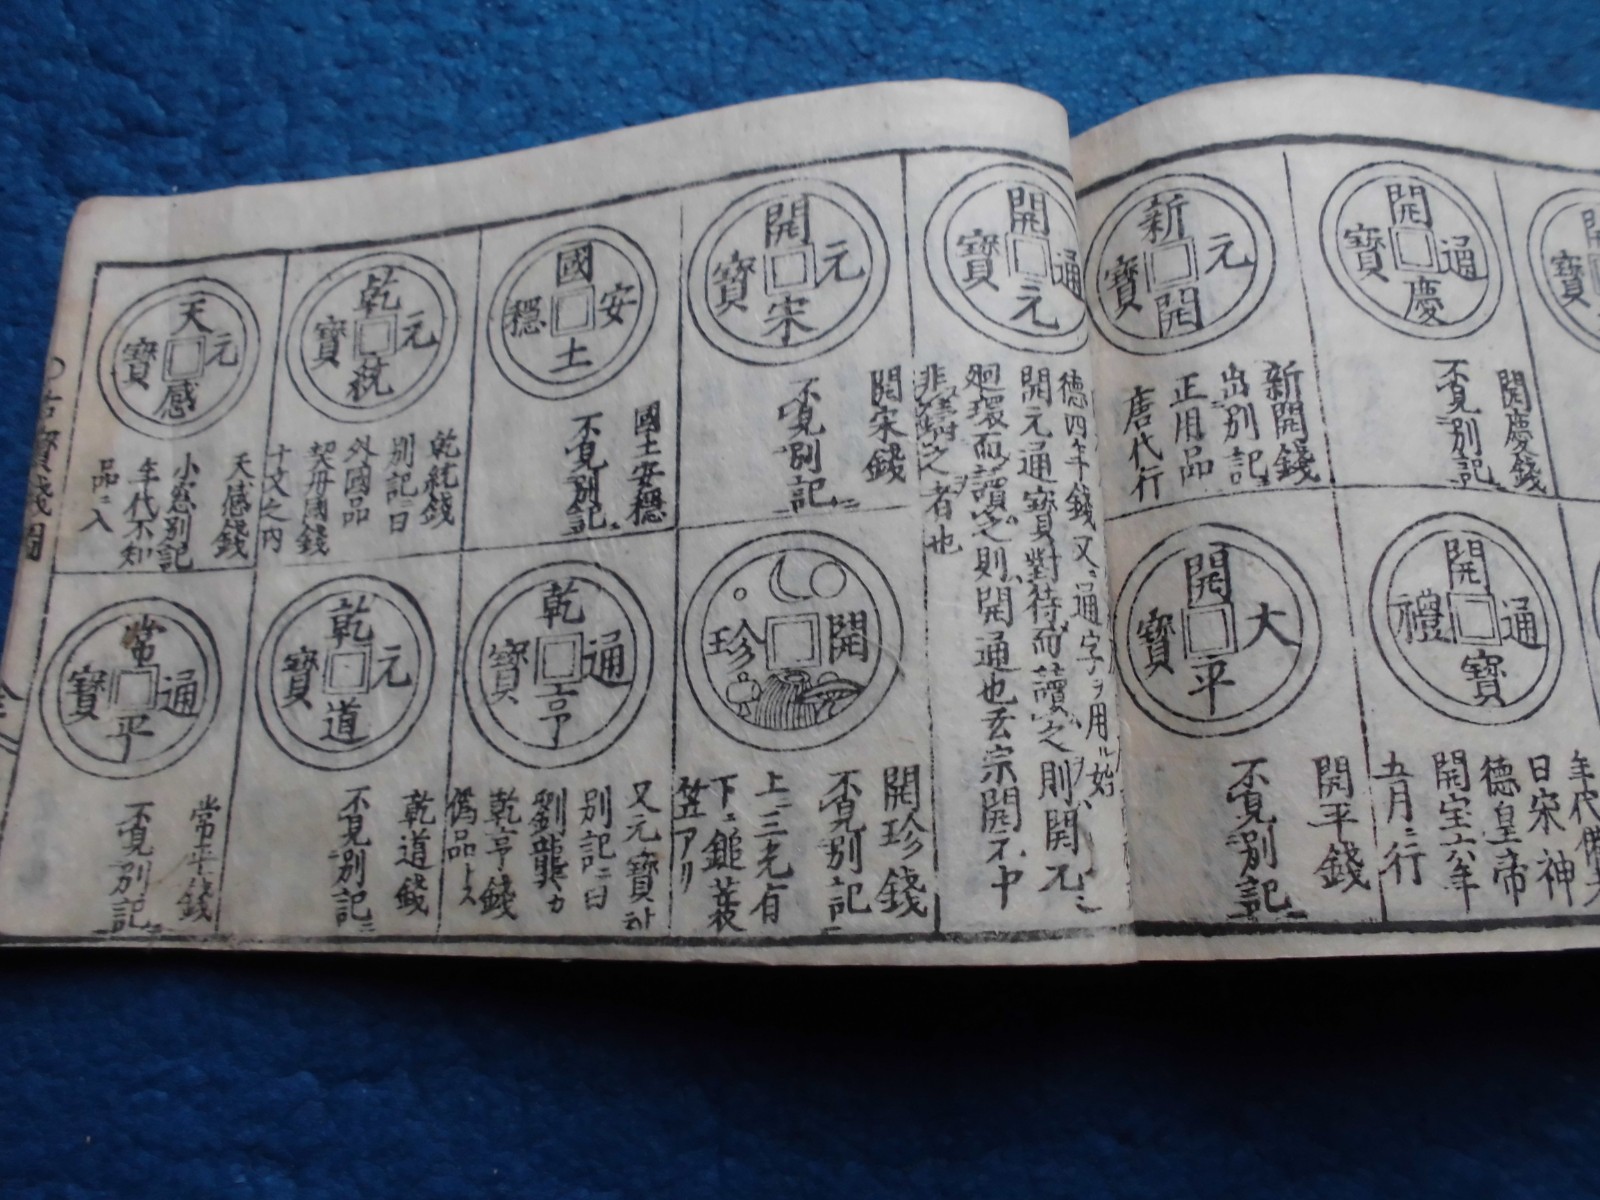 開通慶寶
開慶錢
不見別記ニ
開通寶禮
年代
曰宋神
德皇帝
開宝六年
五月ニ行
新元開寶
新開錢
出別記ニ
正用品
唐代行
開大平寶
開平錢
不見別記ニ
開通元寶
德四年錢又通字ヲ用ル始
開元通寶對待而讀之則開元
廻環而讀之則開通也玄宗開元中
非鑄之者也
開元宋寶
開宋錢
不見別記ニ
開珍
開珍錢
不見別記ニ
上ニ三光有
下ニ鎚蓑
笠アリ
國安土穩
國土安穩
不見別記ニ
乾通亨寶
又元寶
別記ニ曰
劉龑カ
乾亨錢
偽品トス
乾元統寶
乾統錢
別記ニ曰
外國品
契丹國錢
十文之内
乾元道寶
乾道錢
不見別記ニ
天元感寶
天感錢
小窓別記
年代不知
品ニ入
常通平寶
常平錢
不見別記ニ